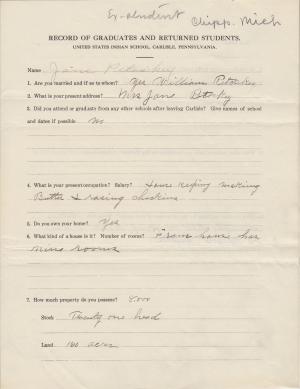 Ex-student
Chipp. Mich
RECORD OF GRADUATES AND RETURNED STUDENTS.
UNITED STATES INDIAN SCHOOL, CARLISLE, PENNSYLVANIA.
Name Jane
1. Are you married and if so to whom? Yes William Petoskey
2. What is your present address? Mrs Jane Petosky
3. Did you attend or graduate from any other schools after leaving Carlisle? Give names of school
and dates if possible No
4. What is your present occupation? Salary? House Keeping making
Butter & raising chickens
5. Do you own your home? Yes
6. What kind of a house is it? Number of rooms? Frame house has
nine rooms
7. How much property do you possess? 8,000
Stock Twenty one head
Land 160 acres